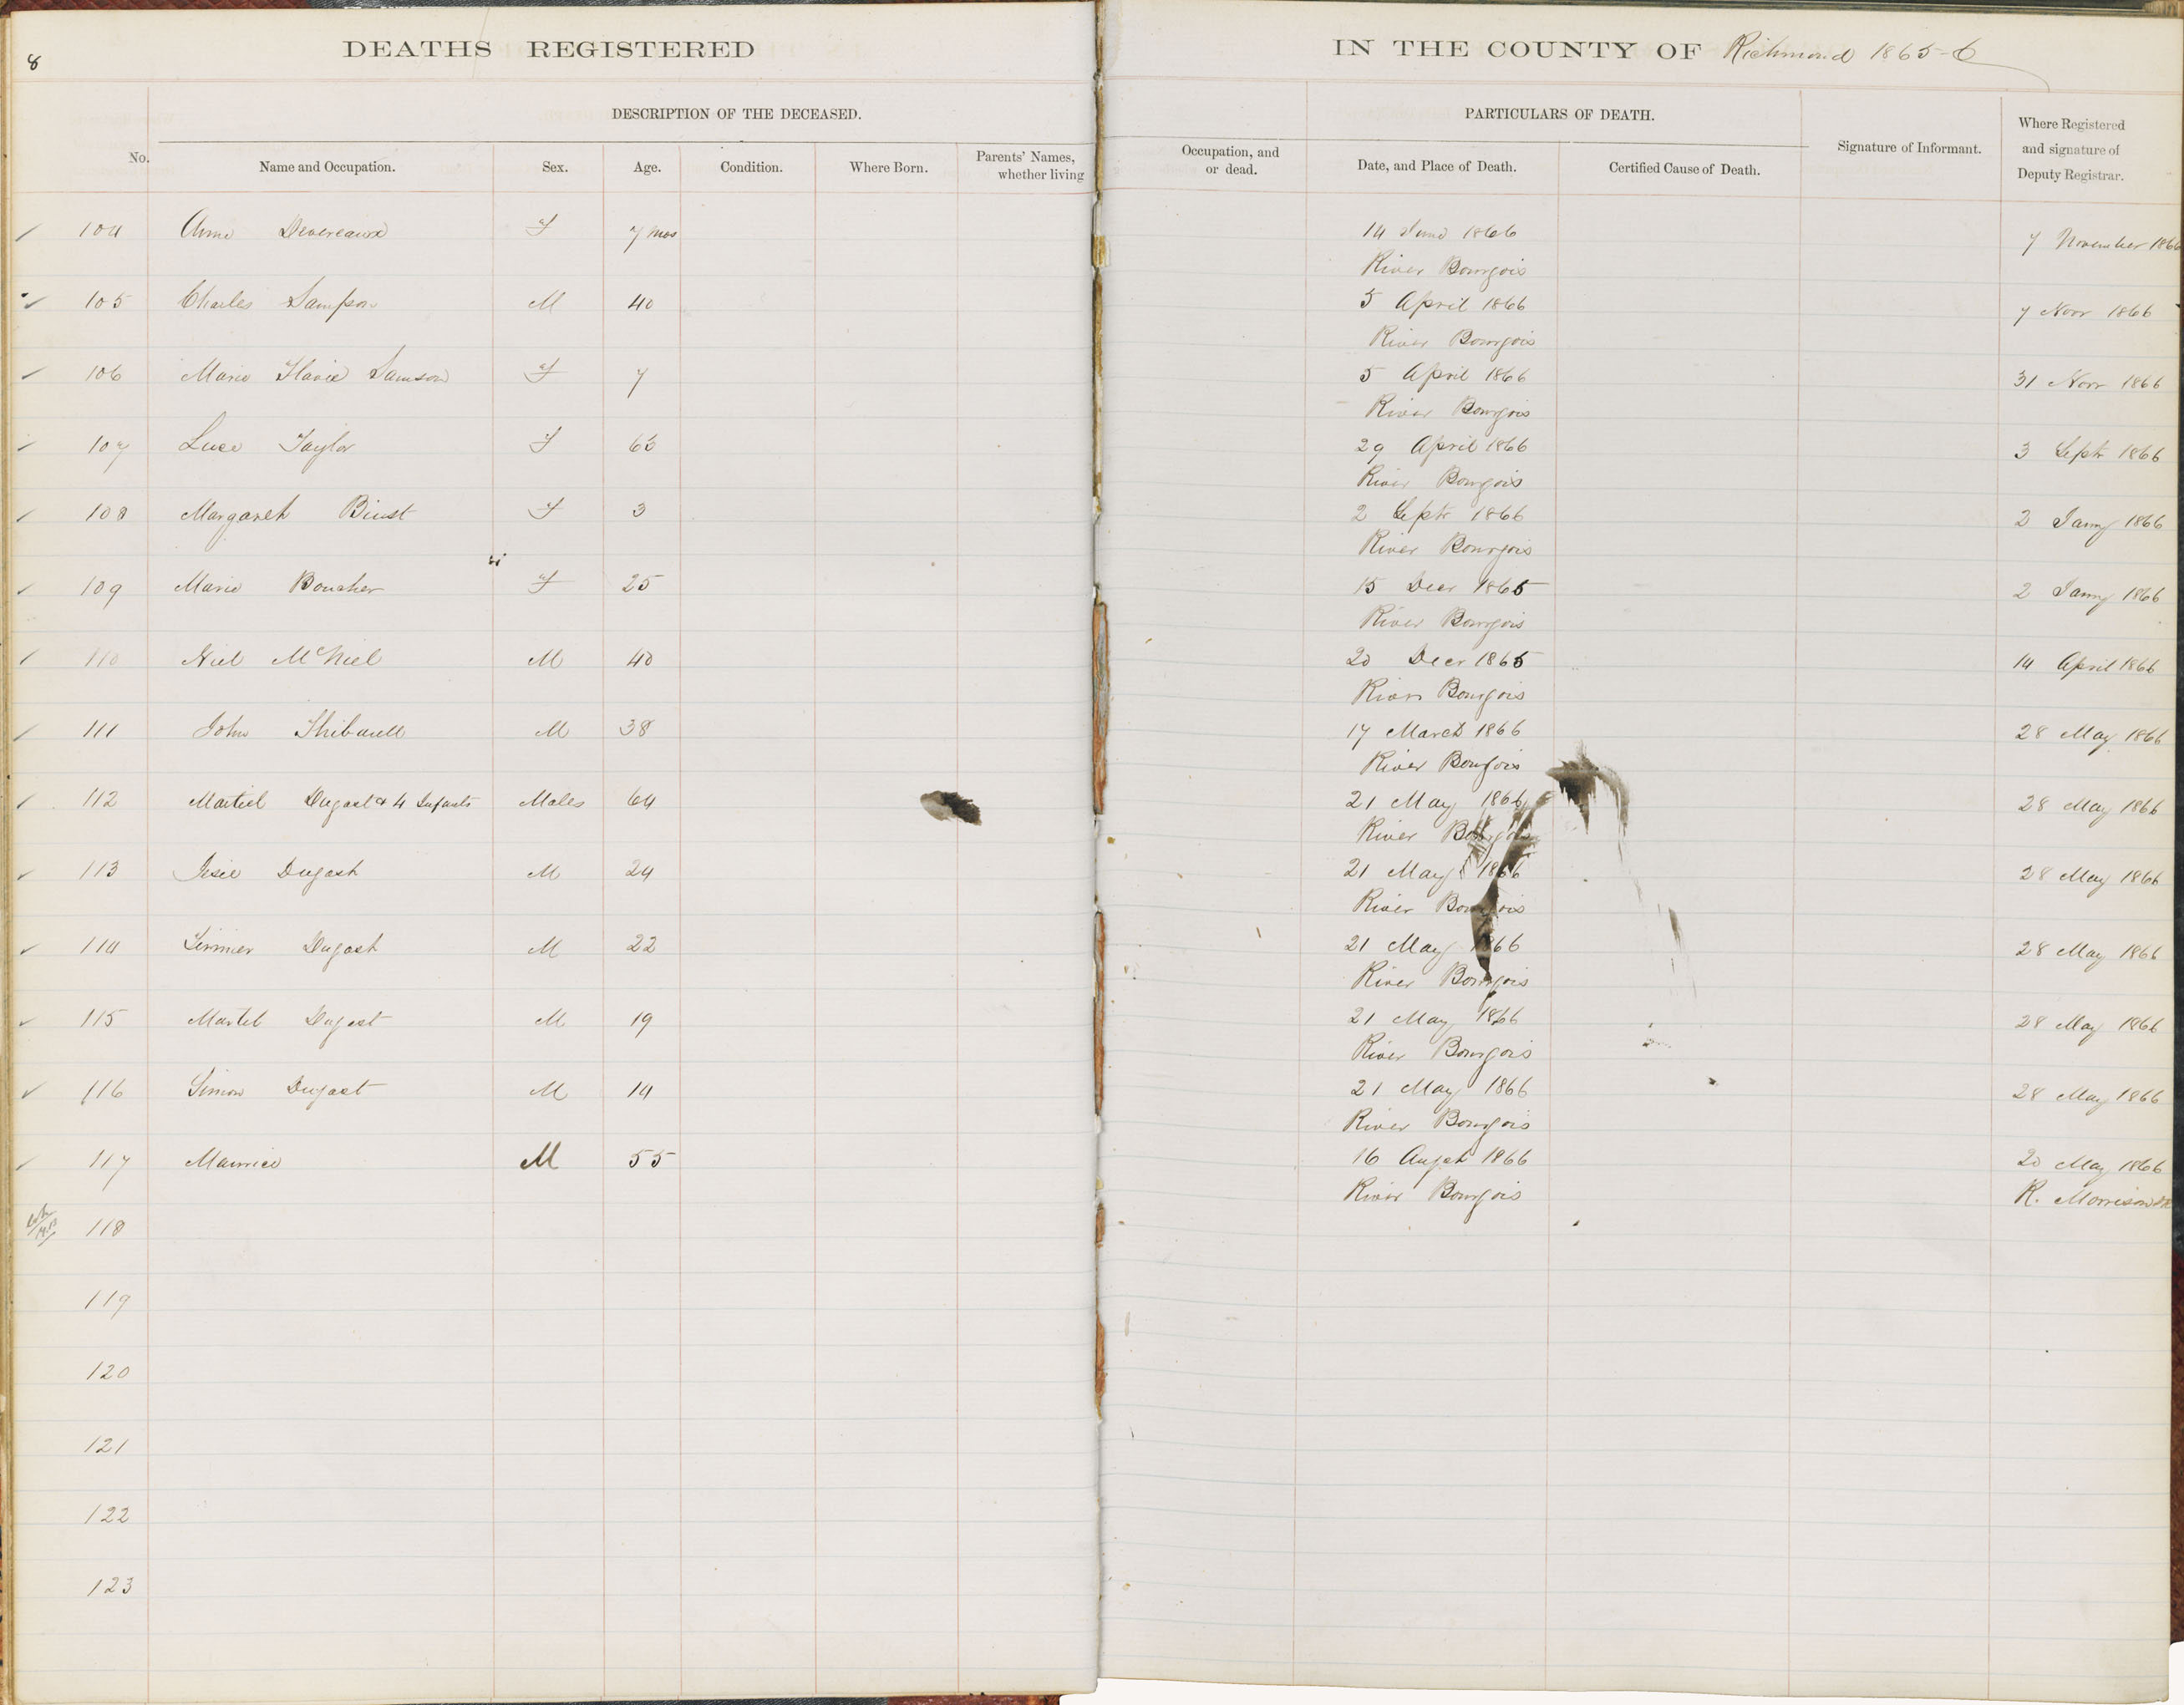 8
DEATHS REGISTERED IN THE COUNTY OF Richmond 1865-6
DESCRIPTION OF THE DECEASED. PARTICULARS OF DEATH.
No. Name and Occupation. Sex. Age. Condition. Where Born. Parents' Names, whether living Occupation, and or dead. Date, and Place of Death. Certified Cause of Death. Signature of Informant. Where Registered and signature of Deputy Registrar.
104 Anne Devereaux F 7 mos 14 June 1866 7 November 1866
River Bourgois
105 Charles Sampson M 40 5 April 1866 7 Novr 1866
River Bourgois
106 Marie Flavie Samson F 7 5 April 1866 31 Novr 1866
River Bourgois
107 Luce Taylor F 65 29 April 1866 3 Septr 1866
River Bourgois
108 Margaret F 3 2 Septr 1866 2 Jany 1866
River Bourgois
109 Marie Boucher F 25 15 Decr 1865 2 Jany 1866
River Bourgois
110 Niel McNiel M 40 20 Decr 1865 14 April 1866
River Bourgois
111 John M 38 17 March 1866 28 May 1866
River Bourgois
112 Martiel Dugast & 4 Infants Males 64 21 May 1866 28 May 1866
River Bourgois
113 Dugast M 24 21 May 1866 28 May 1866
River Bourgois
114 Dugast M 22 21 May 1866 28 May 1866
River Bourgois
115 Martel Dugast M 19 21 May 1866 28 May 1866
River Bourgois
116 Simon Dugast M 14 21 May 1866 28 May 1866
River Bourgois
117 Maurice M 55 16 Augst 1866 20 May 1866
River Bourgois R. Morrison
118
119
120
121
122
123